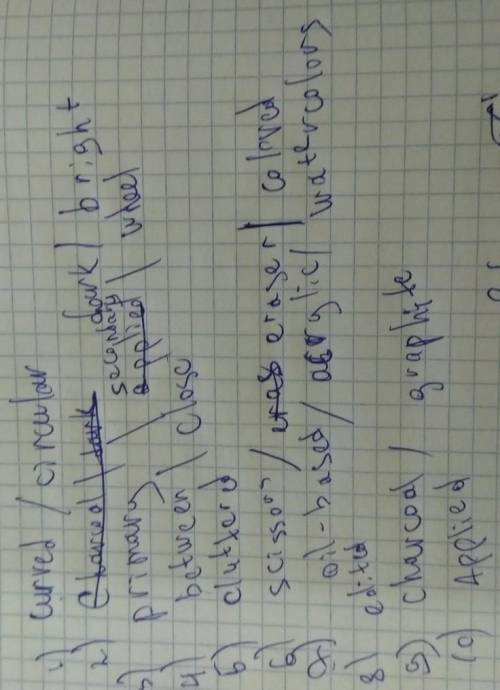 1) curved / circular
2) dark / bright
3) primary / secondary / wheel
4) between / close
5) cluttered
6) scissors / eraser / colored
7) oil-based / acrylic / watercolors
8) edited
9) charcoal / graphite
10) Applied